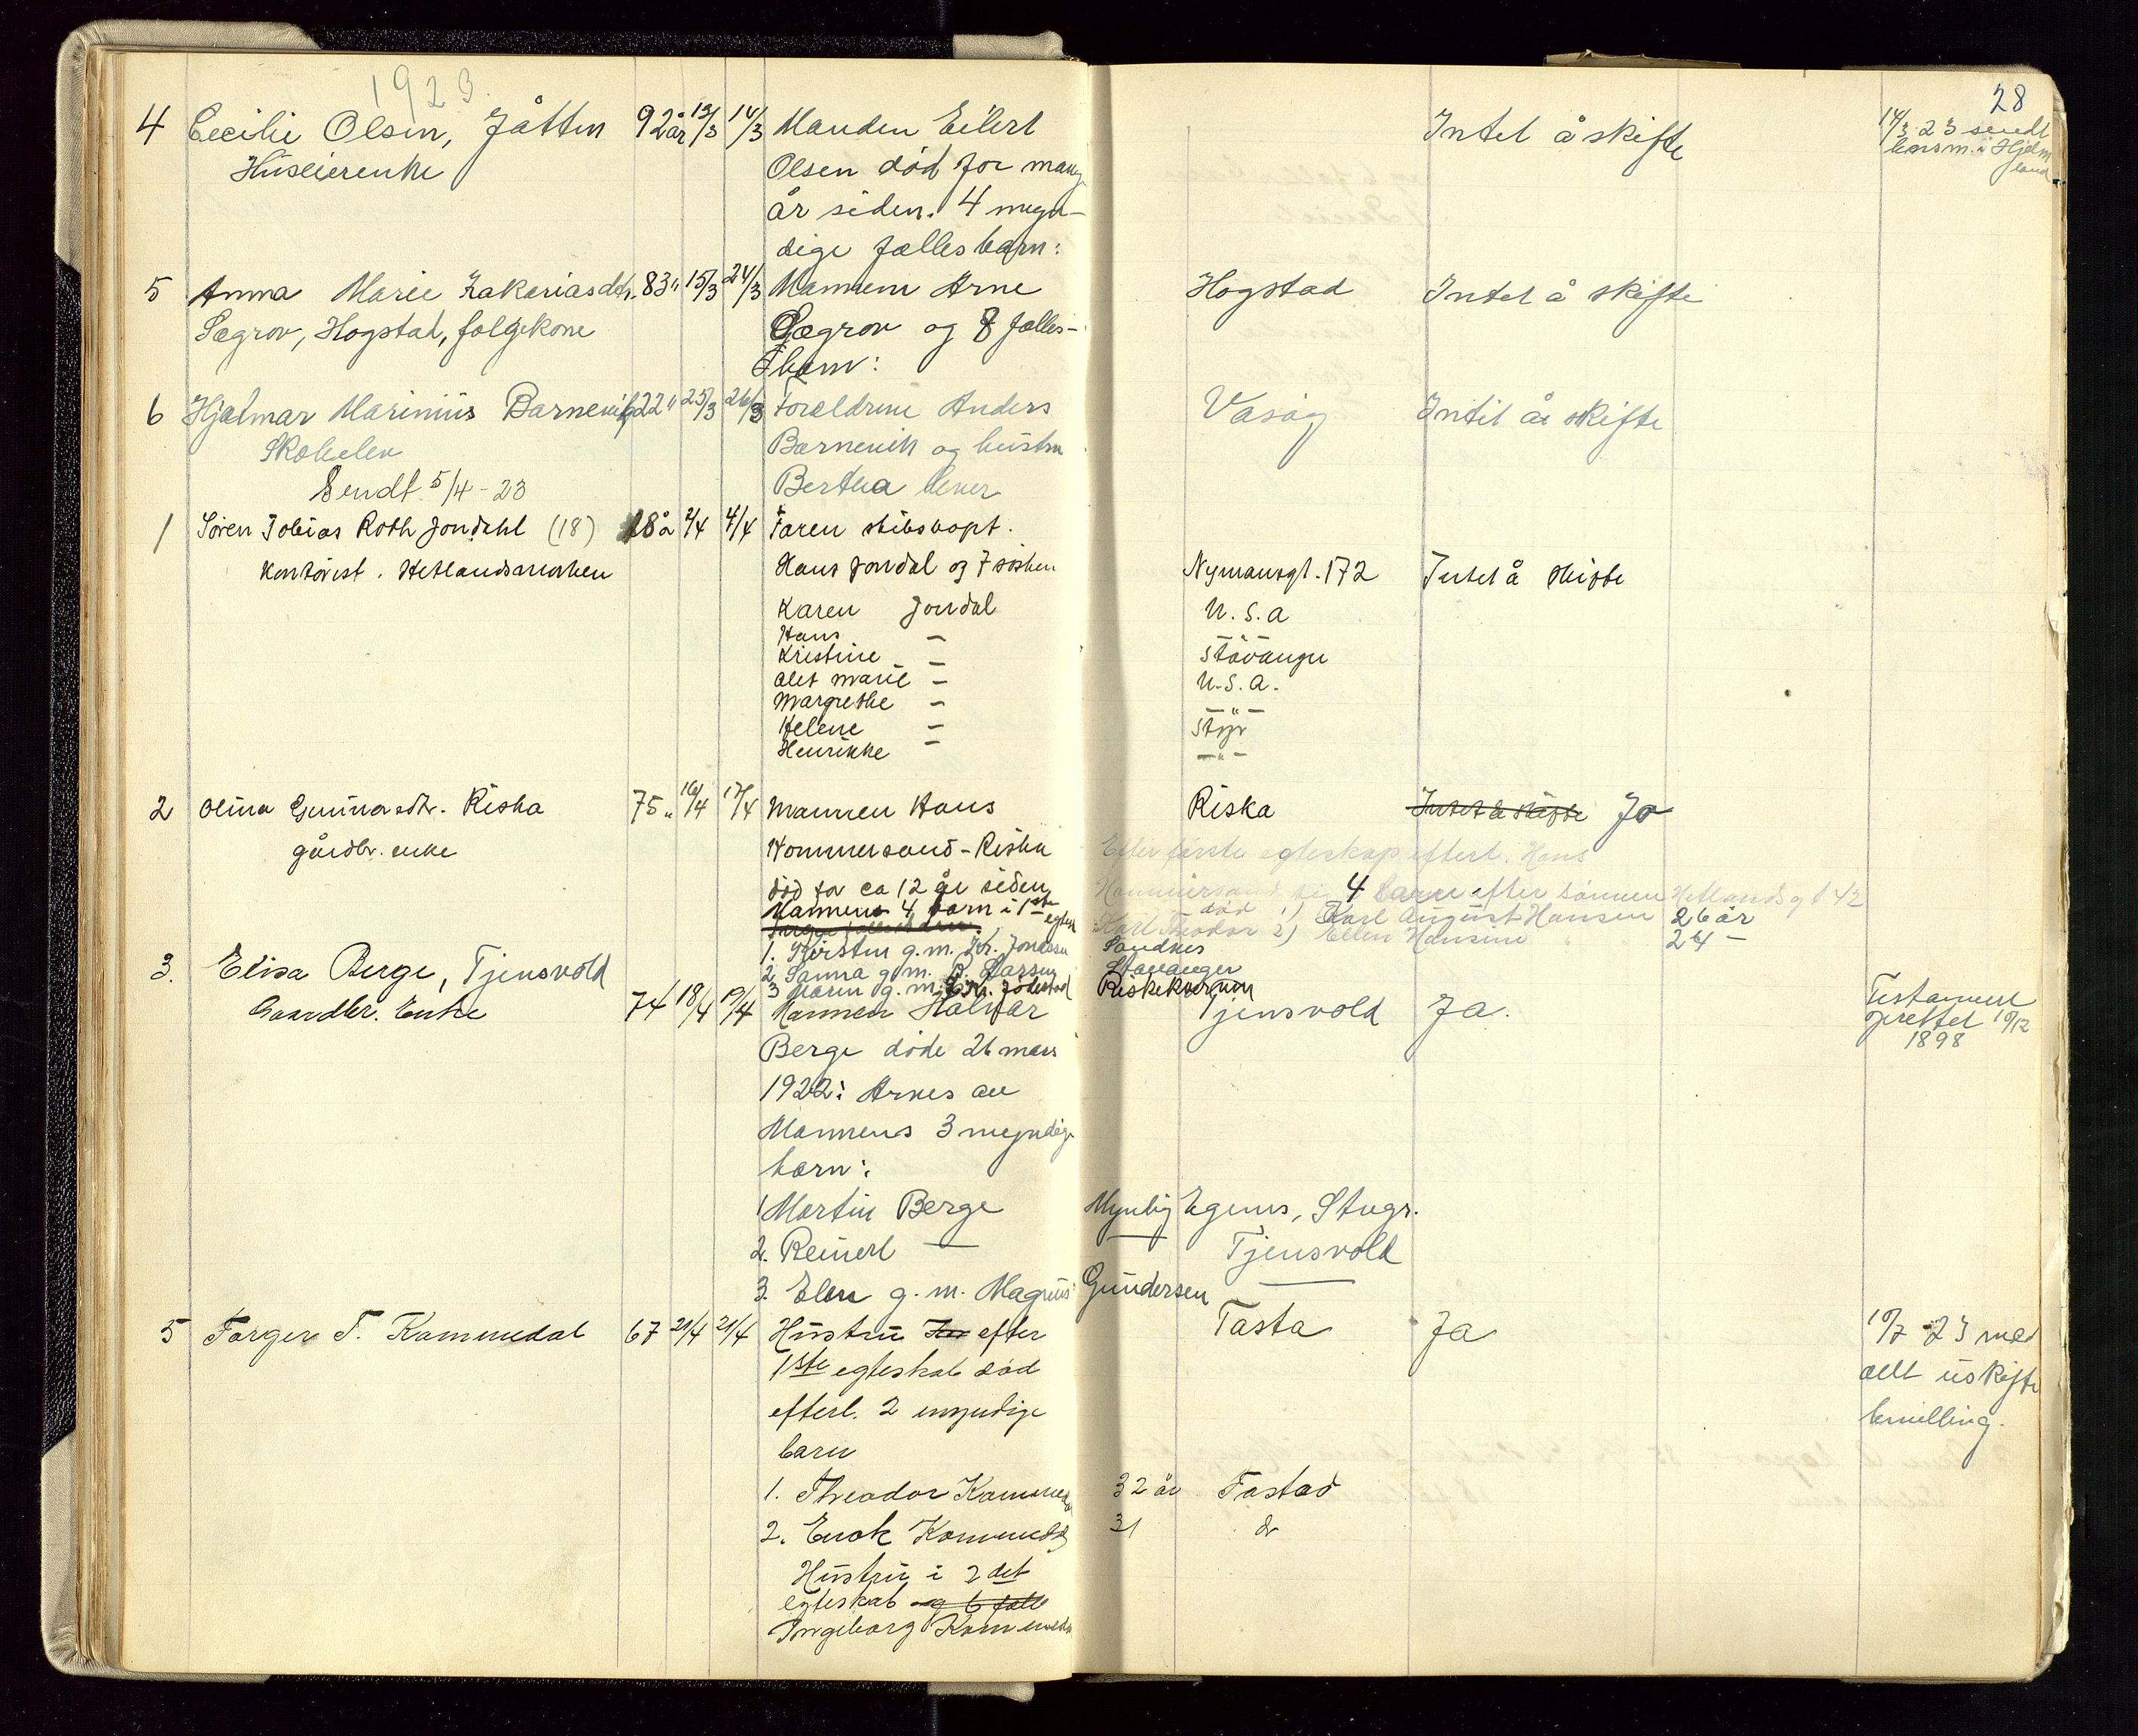 1923
28
4 Cecilie Olsen, Jåtten 92 år 13/3 14/3 Manden Eilert Intet å skifte 14/3 23 sendt
Huseierenke lensm. i Hjelm
land
Olsen død for mange
år siden. 4 myn-
dige fællesbarn:
5 Anna Marie Zakariasdtr. 83 " 15/3 24/3 Mannen Arne Hogstad Intet å skifte
Søgrov, Hogstad, følgekone Søgrov og 8 fælles-
barn:
6 Hjalmar Marinius Barnevik 22 " 25/3 26/3 Forældrene Anders Vasøy Intet å skifte
Skoelev Barnevik og hustru
Sendt 5/4-23 Bertha lever
1 Søren Tobias Roth Jondahl (18) 18 å 2/4 4/4 Faren skibskapt.
Kontorist. Hetlandsmarken Hans Jondal og 7 søsken Nymansgt. 172 Intet å skifte
Karen Jondal U.S.A
Hans — — " —
Kristine — Stavanger
Alet Marie — U.S.A.
Margrethe — — " —
Helene — Stvgr
Henrikke — — " —
2 Olina Gunnarsdtr. Riska 75 " 16/4 17/4 Mannen Hans Riska Intet å skifte Ja
gårdbr. enke Hommersand-Riska Efter første egteskap efterl. Hans
død for ca 12 år siden Hommersand 4 barn efter sønnen Hetlandsgt 42
Mannens 4 barn i 1ste egtesk død 1) Karl August Hansen 26 år
Karl Theodor 2) Ellen Hansine " 24 —
1. Kirsten g.m. Joh. Jonassen Sandnes
2 Sanna g.m. O. Larsen Stavanger
3 Maren g.m. Jødestad Riskekvernen
3. Elisa Berge, Tjensvold
Gaardbr. Enke 74 18/4 19/4 Mannen Halvar Tjensvold Ja. Testament
oprettet 10/12
1898
Berge døde 26 mars
1922: Arves av
Mannens 3 myndige
barn:
1 Martin Berge Myndig Egenes, Stvgr.
2. Reinert — — Tjensvold
3. Elen g.m. Magnus Gundersen —
5 Torger T. Kommedal 67 21/4 21/4 Hustru efter Tasta Ja 10/7 23 med
1ste egteskab død delt uskifte
efterl. 2 myndige bevilling.
barn
1. Theodor Kommedal 32 år Tastad
2. Enok Kommedal 31 do
Hustru i 2det
egteskab og 6 fælle
Ingeborg Kommedal